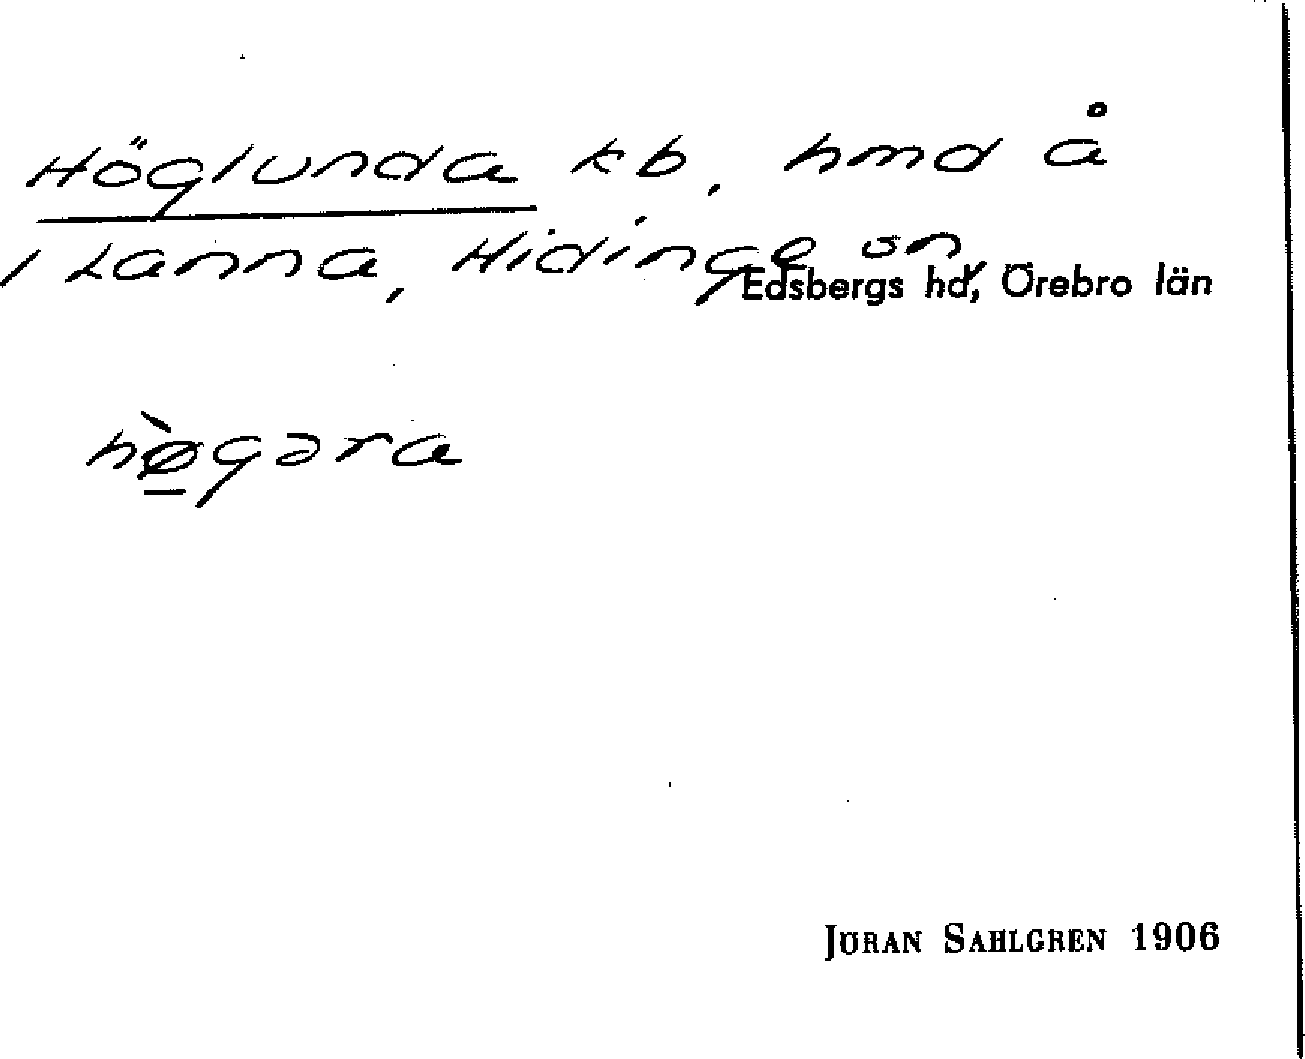 Höglunda kb, hmd å
1 Lanna, Hidinge sn,
Edsbergs hd, Örebro län
hø̱̀gəra
JÖRAN SAHLGREN 1906